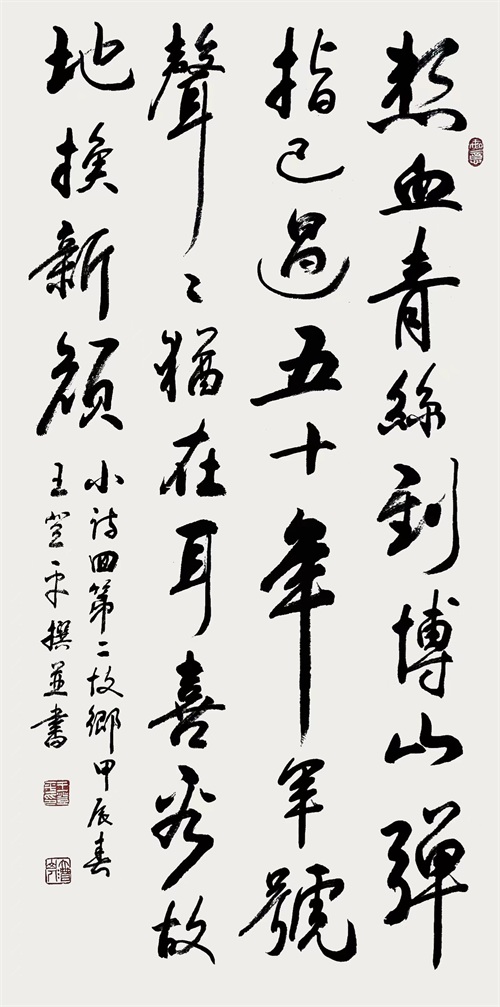 热血青絲到博山彈
指已過五十年軍號
聲〻猶在耳喜看故
地換新顔
小詩回第二故鄉甲辰春
王登平撰並書